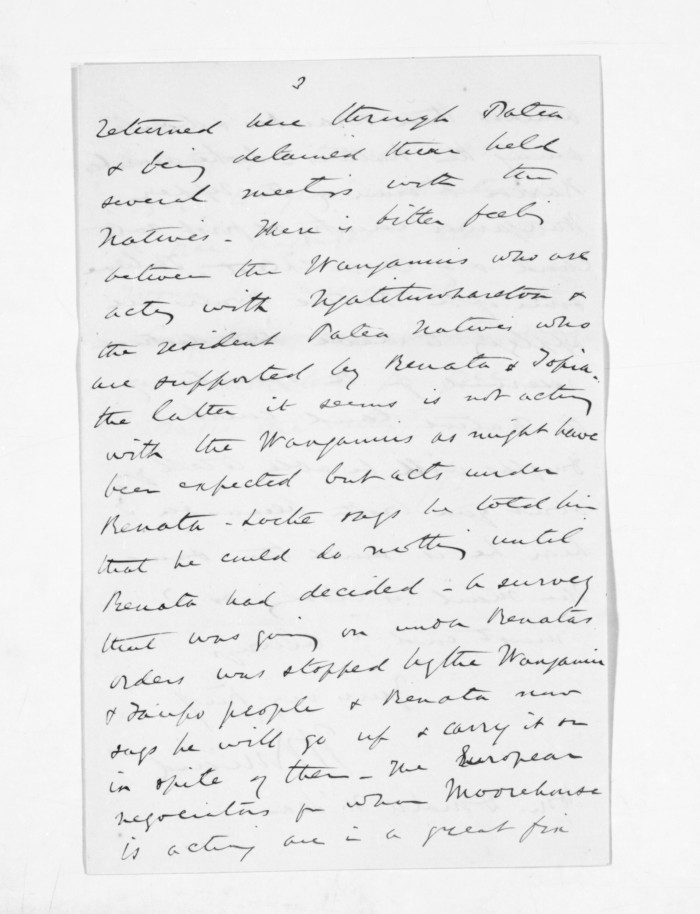 3
returned here through Patea
& being detained there held
several meetings with the
Natives - There is bitter feeling
between the Wanganuis who are
acting with Ngatituwharetoa &
the resident Patea Natives who
are supported by Renata & Topia.
the latter it seems is not acting
with the Wanganuis as might have
been expected but acts under
Renata - Locke says he told him
that he could do nothing until
Renata had decided - a survey
that was going on under Renatas
orders was stopped by the Wanganui
& Taupo people & Renata now
says he will go up & carry it on
in spite of them - The European
negociators for whom Moorehouse
is acting are in a great fix